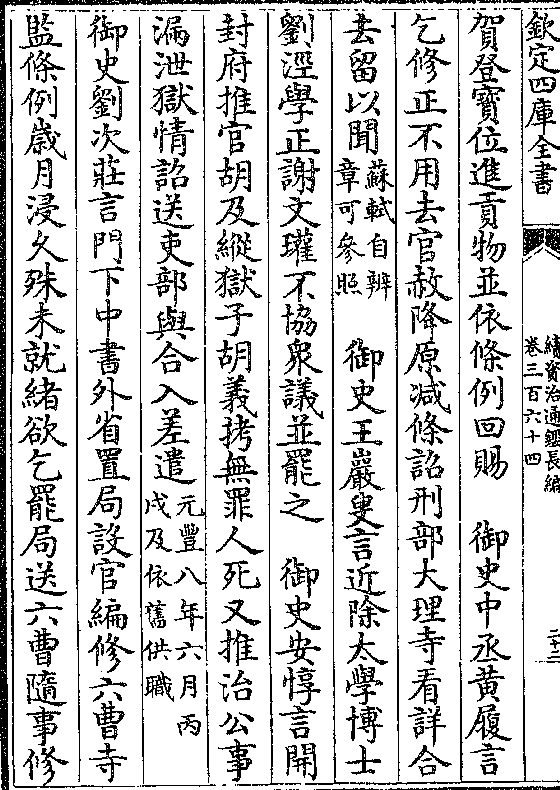 欽定四庫全書
續資治通鑑長編
卷三百六十四
二十二
賀登寳位進貢物並依條例回賜　御史中丞黄履言
乞修正不用去官赦降原減條詔刑部大理寺看詳合
去留以聞蘇軾自辨章可參照　御史王巖叟言近除太學博士
劉涇學正謝文瓘不協衆議並罷之　御史安惇言開
封府推官胡及縱獄子胡義拷無罪人死又推治公事
漏泄獄情詔送吏部與合入差遣元豐八年六月丙戌及依舊供職
御史劉次莊言門下中書外省置局設官編修六曹寺
監條例歲月浸久殊未就緒欲乞罷局送六曹隨事修